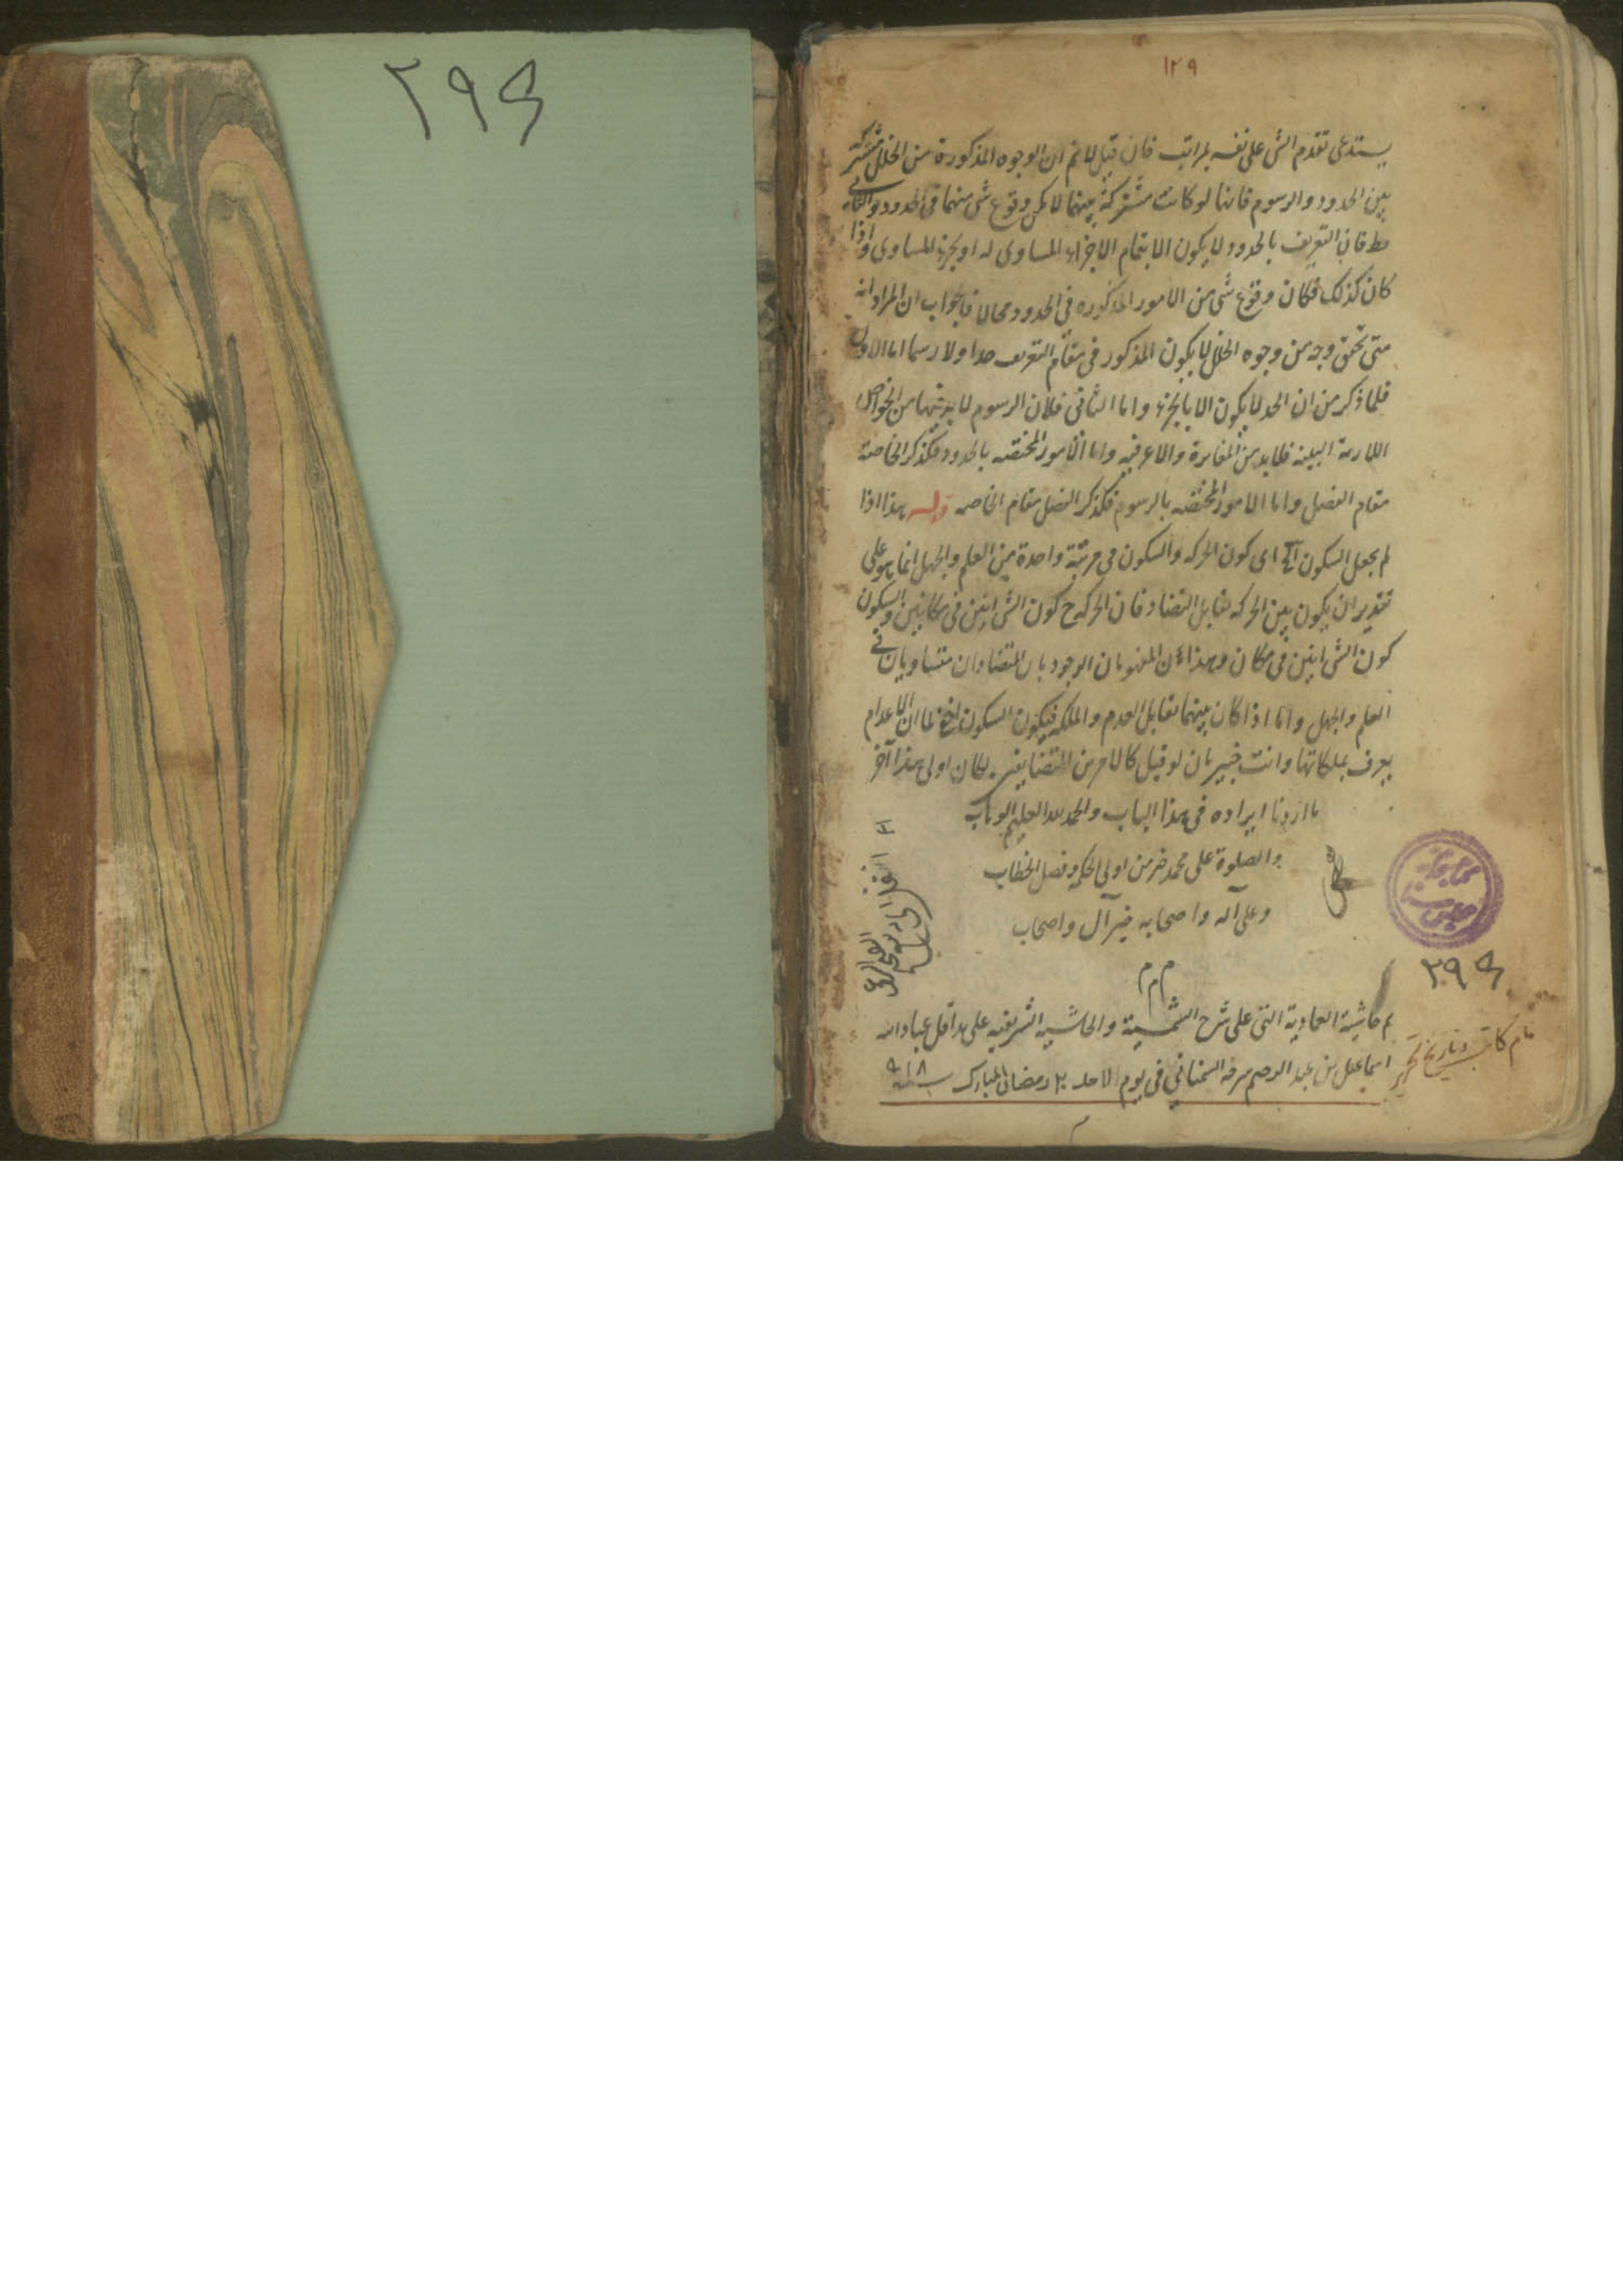 ۲۹۶
۱۲۹
يستدعى تقدم الشى على نفسه بمراتب فان قيل لانم ان الوجوه المذكورة من الخلل مشتركة
بين الحدود والرسوم فانها لو كانت مشتركة بينهما لا يمكن وقوع شى منهما فى الحدود والتالى
بط فان التعريف بالحدود لا يكون الا بتمام الاجزاء المساوى له او بجزئه المساوى واذا
كان كذلك فكان وقوع شى من الامور المذكوره فى الحدود محالا فالجواب ان المراد انه
متى تحقق وجه من وجوه الخلل لا يكون المذكور فى مقام التعريف حدا ولا رسما اما الاول
فلما ذكر من ان الحد لا يكون الا بالجزء واما الثانى فلان الرسوم لا بد فيها من الخواص
اللازمة البينه فلابد من المغايرة والاعرفيه واما الامور المختصه بالحدود فكذكر الخاصة
مقام الفصل واما الامور المختصه بالرسوم فكذكر الفصل مقام الخاصه قوله هذا اذا
لم يجعل السكون الخ اى كون الحركه والسكون فى مرتبة واحدة من العلم والجهل انما هو على
تقدير ان يكون بين الحركه تقابل التضاد فان الحركة ح كون الشى اينين فى مكانين والسكون
كون الشى اينين فى مكان وهذان المفهومان الوجوديان المتضادان متساويان فى
العلم والجهل واما اذا كان بينهما تقابل العدم والملكه فيكون السكون اخفى لما ان الاعدام
يعرف بملكاتها وانت خبير بان لو قيل كالامرين المتضايفين لكان اولى هذا آخر
ما اردنا ايراده فى هذا الباب والحمد لله العليم الوهاب
والصلوة على محمد خير من اولى الحكم وفصل الخطاب
وعلى آله واصحابه خير آل واصحاب
م م م
۲۹۶
تم حاشية العمادية التى على شرح الشمسية والحاشيه الشريفيه على يد اقل عباد الله
اسماعيل بن عبد الرحيم السمنانى فى يوم الاحد ۲۰ رمضان المبارك سنه ۹۱۸
نام كاتب وتاريخ تحرير